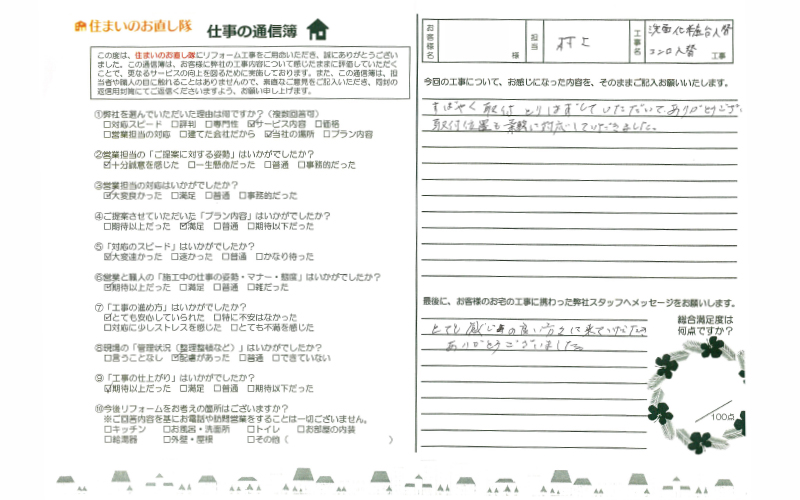 住まいのお直し隊
仕事の通信簿
この度は、住まいのお直し隊にリフォーム工事をご用命いただき、誠にありがとうござい
ました。この通信簿は、お客様に弊社の工事内容について感じたままに評価していただく
ことで、更なるサービスの向上を図るために実施しております。また、この通信簿は、担
当者や職人の目に触れることはありませんので、率直なご意見をご記入いただき、同封の
返信用封筒にてご返信くださいますよう、お願い申し上げます。
①弊社を選んでいただいた理由は何ですか?(複数回答可)
□対応スピード □評判 □専門性 ☑サービス内容 □価格
□営業担当の対応 □建てた会社だから ☑当社の場所 □プラン内容
②営業担当の「ご提案に対する姿勢」はいかがでしたか?
☑十分誠意を感じた □一生懸命だった □普通 □事務的だった
③営業担当の対応はいかがでしたか?
☑大変良かった □満足 □普通 □事務的だった
④ご提案させていただいた「プラン内容」はいかがでしたか?
□期待以上だった ☑満足 □普通 □期待以下だった
⑤「対応のスピード」はいかがでしたか?
☑大変速かった □速かった □普通 □かなり待った
⑥営業と職人の「施工中の仕事の姿勢・マナー・態度」はいかがでしたか?
☑期待以上だった □満足 □普通 □雑だった
⑦「工事の進め方」はいかがでしたか?
☑とても安心していられた □特に不安はなかった
□対応に少しストレスを感じた □とても不満を感じた
⑧現場の「管理状況(整理整頓など)」はいかがでしたか?
□言うことなし ☑配慮があった □普通 □できていない
⑨「工事の仕上がり」はいかがでしたか?
☑期待以上だった □満足 □普通 □期待以下だった
⑩今後リフォームをお考えの箇所はございますか?
※ご回答内容を基にお電話や訪問営業をすることは一切ございません。
□キッチン □お風呂・洗面所 □トイレ □お部屋の内装
□給湯器 □外壁・屋根 □その他( )
お客様名 様 担当 村上 工事名 洗面化粧台入替
コンロ入替 工事
今回の工事について、お感じになった内容を、そのままご記入お願いいたします。
すばやく取付とりはずしていただいてありがとうござい
取付位置も柔軟に対応していただきました。
最後に、お客様のお宅の工事に携わった弊社スタッフへメッセージをお願いします。
とても感じの良い方々に来ていただき
ありがとうございました。
総合満足度は
何点ですか?
/100点